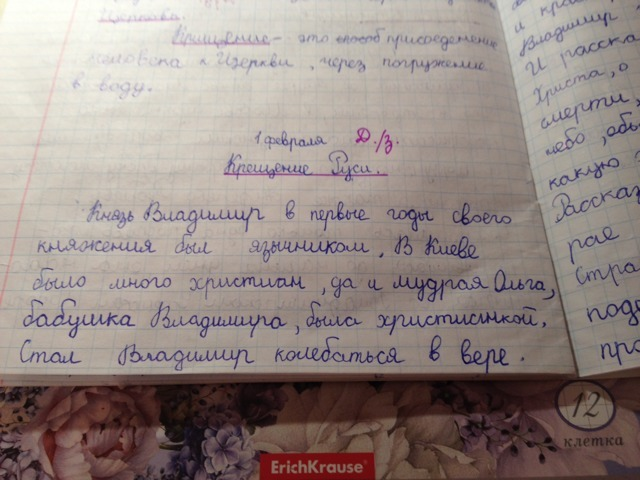 Церковь.
Крещение - это способ присоединение
человека к Церкви, через погружение
в воду.
1 февраля Д./з.
Крещение Руси.
Князь Владимир в первые годы своего
княжения был язычником. В Киеве
было много христиан, да и мудрая Ольга,
бабушка Владимира, была христианкой.
Стал Владимир колебаться в вере.
и кра
Владимир
И расска
Христа, о
смерти,
небо, обе
какую
Расска
рае
Стра
поды
про
12
клетка
ErichKrause